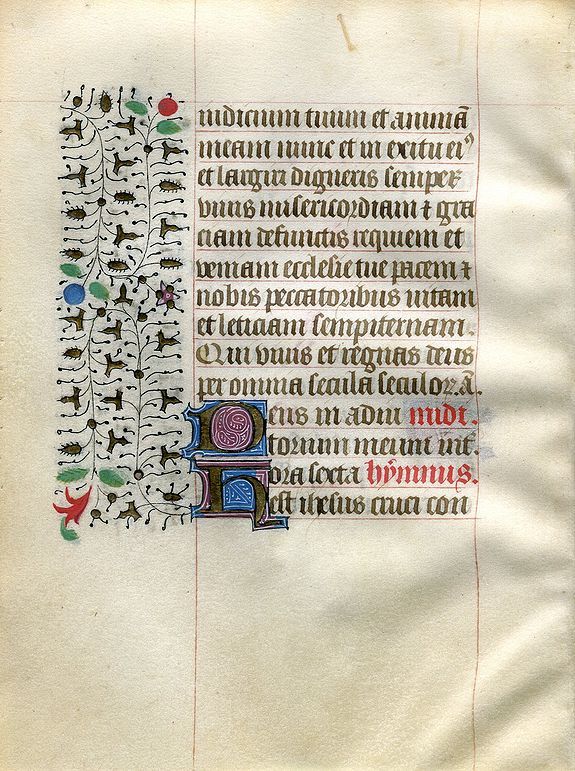 iudicium tuum et animā
meam nunc et in exitu eiꝰ
et largiri digneris semper
viuis misericordiam ⁊ gra
ciam defunctis requiem et
veniam ecclesie tue pacem ⁊
nobis peccatoribus uitam
et leticiam sempiternam.
Qui viuis et regnas deus
per omnia secula seculoꝝ. A.
Deus in adiu midt.
torium meum int.
Hora sexta hȳmnus.
est ihesus cruci con